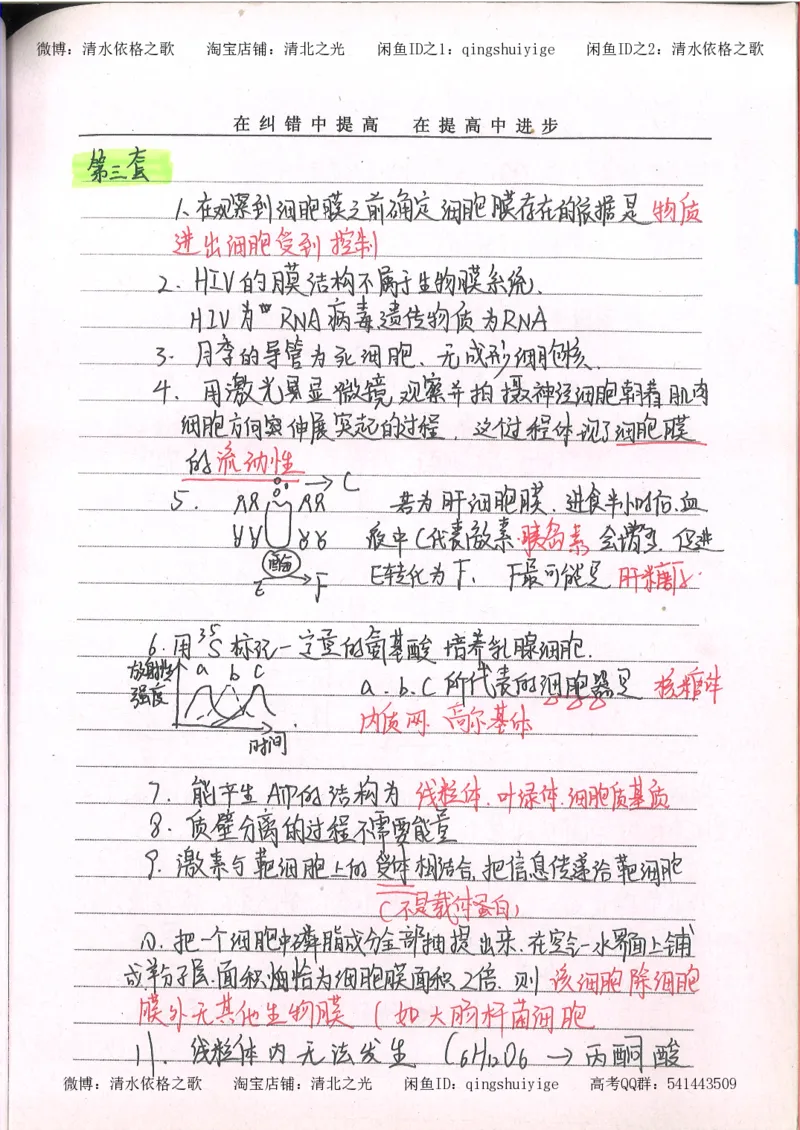 微博：清水依格之歌 淘宝店铺：清北之光 闲鱼ID之1：qingshuiyige 闲鱼ID之2：清水依格之歌
在纠错中提高 在提高中进步
第三套
1、在观察到细胞膜之前确定细胞膜存在的依据是 物质
进出细胞受到控制
2. HIV的膜结构不属于生物膜系统.
HIV为 RNA病毒,遗传物质为RNA
3. 月季的导管为死细胞、无成形细胞核.
4. 用激光显微镜观察并拍摄神经细胞朝着肌肉
细胞方向突伸展突起的过程. 这个过程体现了细胞膜
的流动性
5. C 若为肝细胞膜.进食半小时后.血
液中C代表激素.胰岛素 会增多. 促进
酶
E F E转化为F. F最可能是肝糖原.
6.用35S标记一定量的氨基酸 培养乳腺细胞.
放射性
强度 a b c a.b.C所代表的细胞器是 核糖体
内质网.高尔基体
时间
7. 能产生ATP的结构为 线粒体.叶绿体.细胞质基质
8. 质壁分离的过程不需要能量
9. 激素与靶细胞上的受体相结合,把信息传递给靶细胞
(不是载体蛋白)
10. 把一个细胞中磷脂成分全部抽提出来.在空气-水界面上铺
成单分子层.面积恰为细胞膜面积2倍.则 该细胞除细胞
膜外无其他生物膜 (如大肠杆菌细胞
11. 线粒体内无法发生 C6H12O6 → 丙酮酸
微博：清水依格之歌 淘宝店铺：清北之光 闲鱼ID：qingshuiyige 高考QQ群：541443509